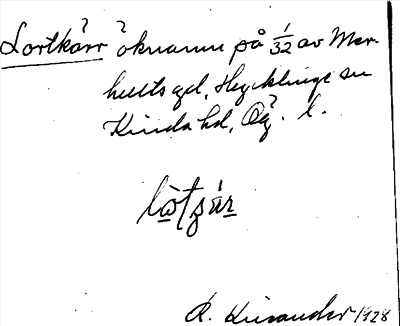 Lortkärr öknamn på 1/32 av Mar-
hults gd, Hycklinge sn
Kinda hd, Ög. l.
R. Kinander 1928